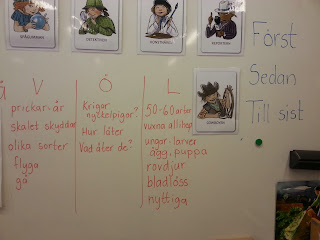 SPÅGUMMAN
DETEKTIVEN
KONSTNÄREN
REPORTERN
COWBOYEN
Först
Sedan
Till sist
V
prickar.år
skalet skyddar
olika sorter
flyga
gå
Ö
Krigar
nyckelpigor?
Hur låter
Vad äter de?
L
50-60 arter
vuxna allihop
ungar-larver
ägg, puppa
rovdjur
bladlöss
nyttiga